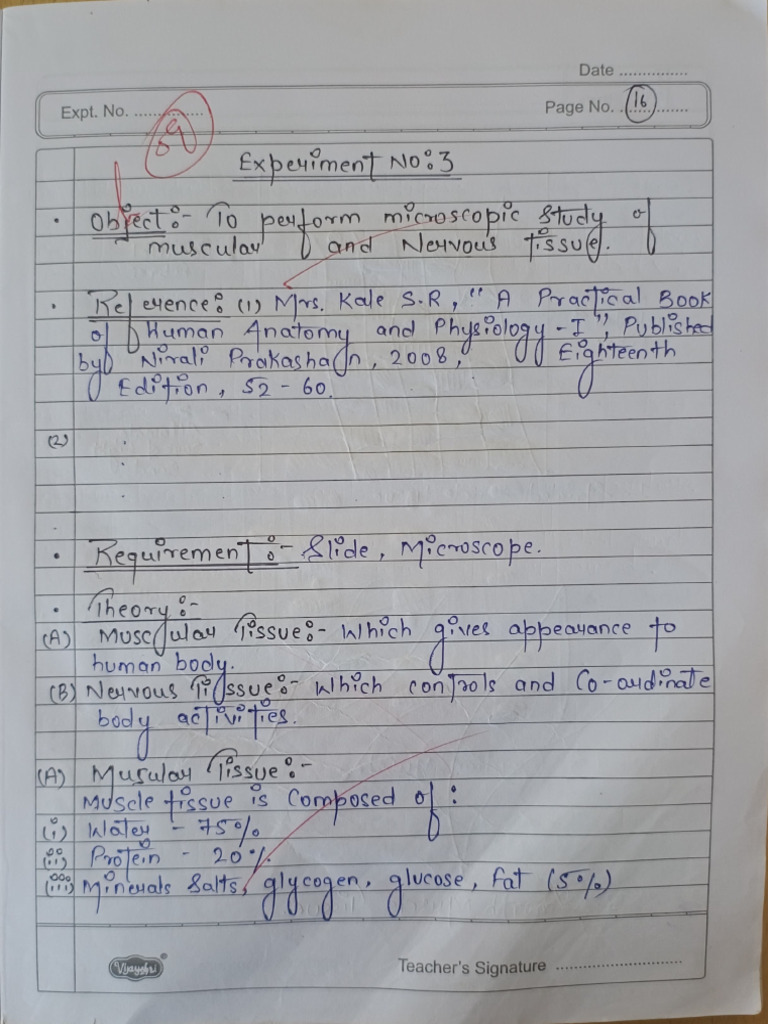 Date ...............
Expt. No. ...............
Page No. ...16.......
Experiment No: 3
• Object:- To perform microscopic study of
muscular and Nervous tissue.
• Reference: (1) Mrs. Kale S.R, " A Practical Book
of Human Anatomy and Physiology - I ", Published
by Nirali Prakashan, 2008, Eighteenth
Edition, 52 - 60.
(2)
• Requirement :- Slide, Microscope.
• Theory :-
(A) Muscular Tissue:- Which gives appearance to
human body.
(B) Nervous Tissue:- Which controls and Co-ordinate
body activities.
(A) Musular Tissue:-
Muscle tissue is Composed of :
(i) Water - 75%
(ii) Protein - 20%
(iii) Minerals Salts, glycogen, glucose, fat (5%)
Vijayshri
Teacher's Signature ...............